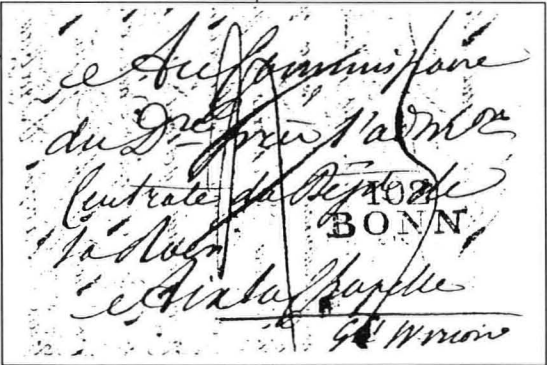 au Commissaire
du Dre près l'admon
Centrale du Dépt de
la Roër
a Aix la Chapelle
102
BONN